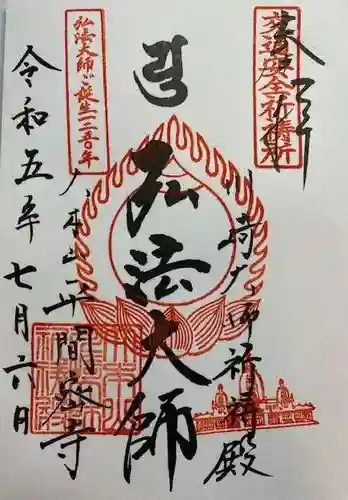 交通安全祈祷所
奉拝
川崎大師祈祷殿
弘法大師
弘法大師ご誕生一二五〇年
大本山平間密寺
令和五年七月六日